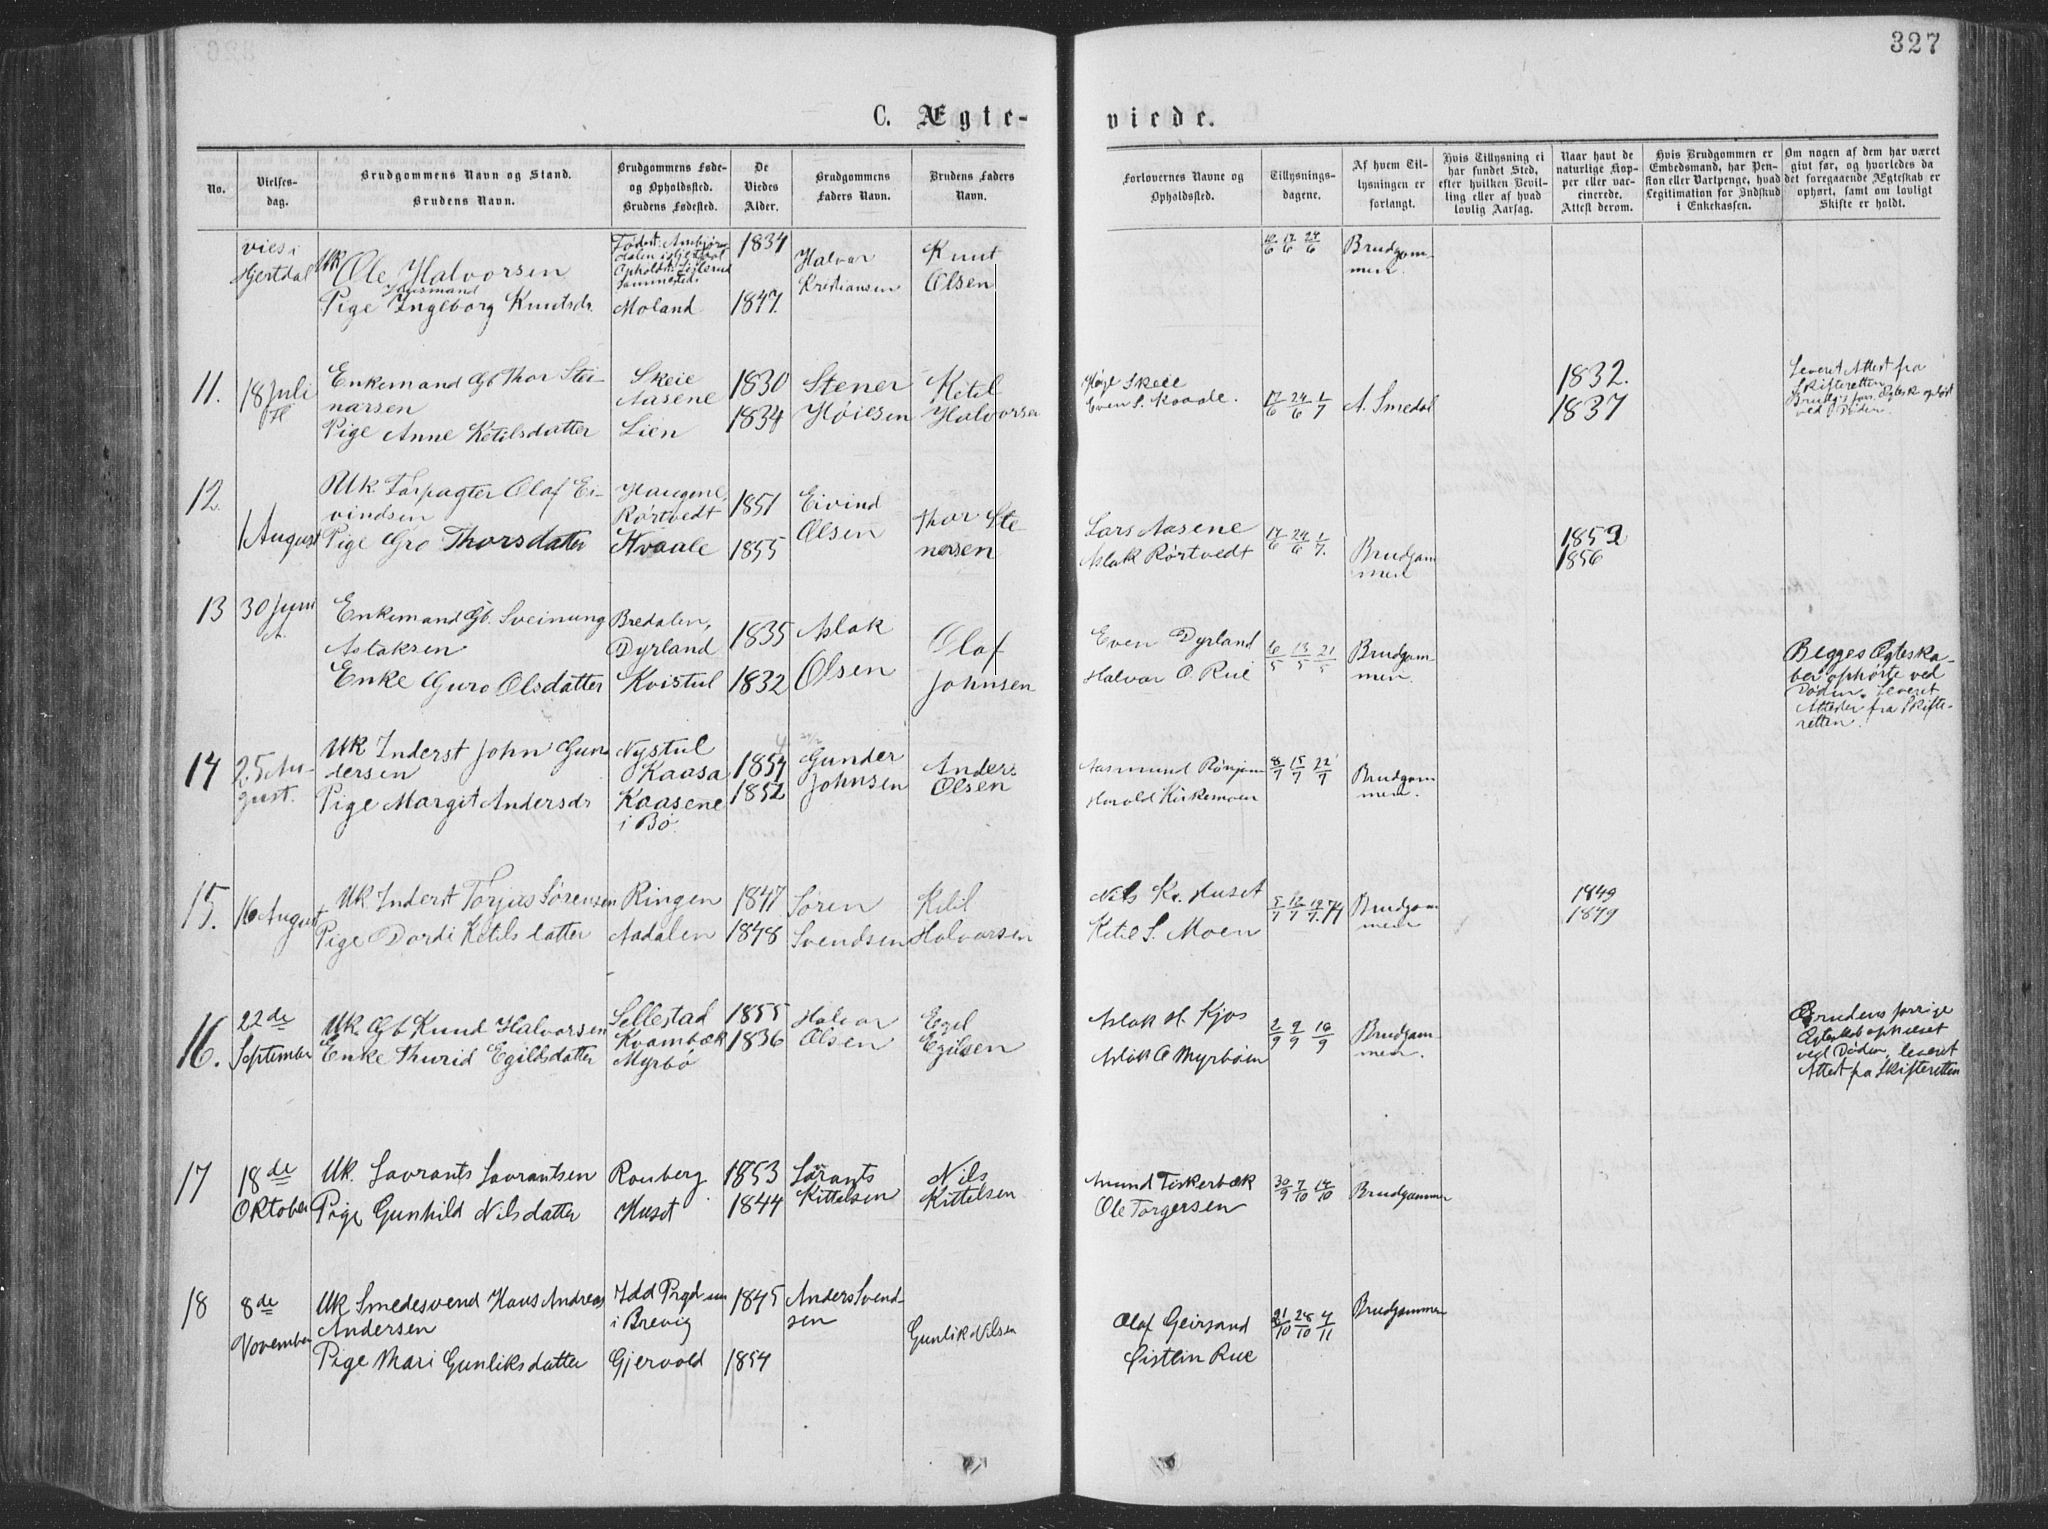 327
C. Ægte-
viede.
No.
Vielses-
dag.
Brudgommens Navn og Stand.
Brudens Navn.
Brudgommens Føde-
og Opholdssted.
Brudens Fødested.
De
Viedes
Alder.
Brudgommens
Faders Navn.
Brudens Faders
Navn.
Forlovernes Navne og
Opholdssted.
Tillysnings-
dagene.
Af hvem Til-
lysningen er
forlangt.
Hvis Tillysning ei
har fundet Sted,
efter hvilken Bevil-
ling eller af hvad
lovlig Aarsag.
Naar havt de
naturlige Kop-
per eller vac-
cinerede.
Attest derom.
Hvis Brudgommen er
Embedsmand, har Pen-
sion eller Vartpenge, hvad
Legitimation for Indskud
i Enkekassen.
Om nogen af dem har været
givt før, og hvorledes da
det foregaaende Ægteskab er
ophørt, samt om lovligt
Skifte er holdt.
vies i
Hjertdal
Uk Ole Halvorsen
Husmand
Pige Ingeborg Knutsdr
Sammesteds
Moland
1834
1847.
Halvor
Kristiansen
Knut
Olsen
10/6 17/6 24/6
Brudgom-
men.
11.
18 Juli
Enkemand Gb Thor Stei-
narsen
Pige Anne Ketilsdatter
Skeie
Aasene
Lien
1830
1834
Stener
Høiesen
Ketil
Halvorsen
Høye Skeie
Even S. Kaade.
17/6 24/6 1/7
A. Smedal
1832.
1837
Leveret Attest fra
Skifteretten
ved Døden.
12.
1 August
Uk Forpagter Olaf Ei-
vindsen
Pige Gro Thorsdatter
Haugene,
Rørtvedt
Kvaale
1851
1855
Eivind
Olsen
Thor Ste
nersen
Lars Aasene
Aslak Rørtvedt
17/6 24/6 1/7.
Brudgom
men
1852
1856
13
30 Juni
Enkemand Gb. Sveinung
Aslaksen
Enke Guro Olsdatter
Bredalen,
Dyrland
Kvistul
1835
1832
Aslak
Olsen
Olaf
Johnsen
Even Dyrland
Halvor O. Rui
6/5 13/5 21/5
Brudgom-
men.
Begges Ægteska-
ber ophørte ved
Døden. Leveret
Attester fra Skifte-
retten.
14
25 Au-
gust.
Uk Inderst John Gun
dersen
Pige Margit Andersdr
Nystul
Kaasa
Kaasene
i Bø
1854
1852
Gunder
Johnsen
Anders
Olsen
Aasmund Rønjom
Harald Kirkemoen
8/7 15/7 22/7
Brudgom
men.
15.
16 August
Uk Inderst Torjus Sørensen
Pige Dordi Ketilsdatter
Ringen
Aadalen
1847
1848
Søren
Svendsen
Ketil
Halvorsen
Nils Kr. Huset
Ketil S. Moen
Brudgom
men
1849
1849
16.
22de
September
Uk Gb Knud Halvorsen
Enke Thurid Egildsdatter
Sellestad
Kvambæk
Myrbø
1855
1836
Halvor
Olsen
Egil
Egilsen
Aslak H. Kjos
Aslak O Myrbøen
2/9 9/9 16/9
Brudgom
men.
Brudens forrige
Ægteskab ophævet
ved Døden, leveret
Attest fra Skifteretten
17
18de
Oktober
Uk. Lavrants Lavrantsen
Pige Gunhild Nilsdatter
Rouberg
Huset
1853
1844
Lørants
Kittelsen
Nils
Kittelsen
Amund Fiskerbæk
Ole Torgersen
30/9 7/10 14/10
Brudgommen
18
8de
November
Uk Smedesvend Hans Andreas
Andersen
Pige Mari Gunliksdatter
Idd Prgd nu
i Brevig
Gjervold
1845
1854
Anders Svend-
sen
Gunlik Nilsen
Olaf Geirsand
Øistein Rue
21/10 28/10 4/11
Brudgommen